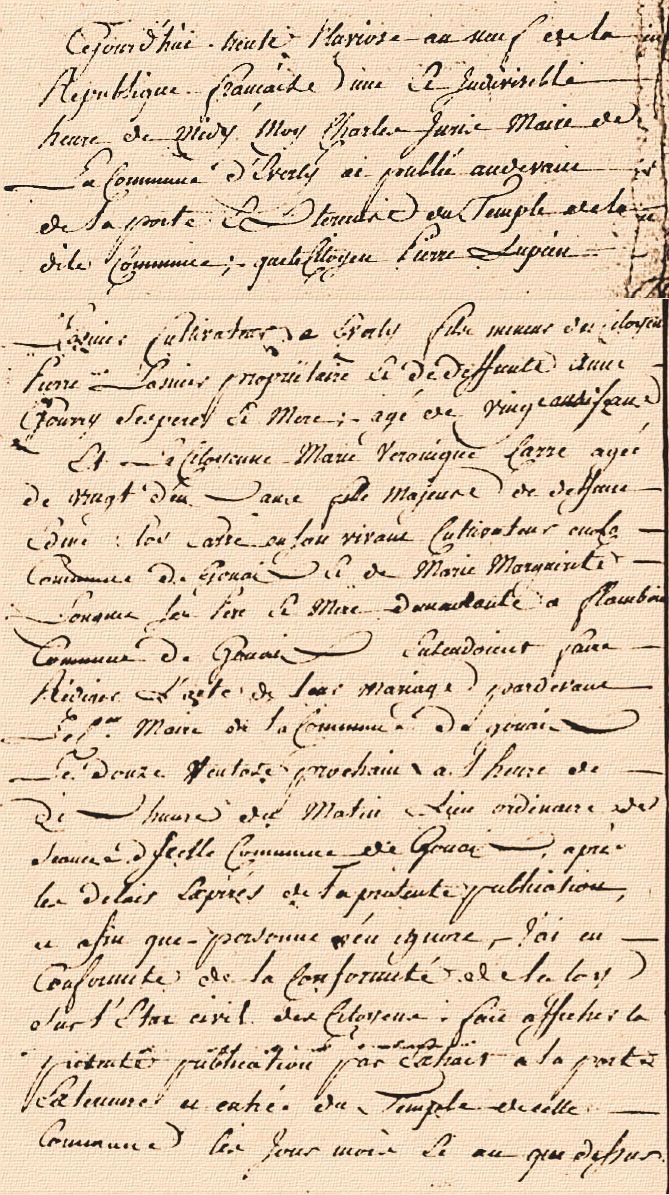 Cejourd'hui trente Pluviose an neuf de la
Republique francaise une Et Indivisible
heure de Midy Moy Charles Maire de
La Commune d'Everly ai publié audevant
de la porte Externne du Temple de la
dite Commune ; que le Citoyen Pierre Lupien
Lasnier Cultivateur a Everly fils mineur du citoyen
Pierre Lasnier propriétaire Et de deffunte Anne
Gourry Ses pere Et Mere ; agé de vingt ans
Et La Citoyenne Marie Veronique Carré agée
de vingt deux ans fille Majeure de deffunt
Edmé Carré en son vivant Cultivateur en la
Commune de Gouaix Et de Marie Marguerite
Ses Pere Et Mere demeurante a flamboin
Commune de Gouaix Entendoient faire
Rediger L'acte de leur mariage pardevant
Le Maire de la Commune de gouaix
Le douze Ventose prochain a l'heure de
dix heures du Matin Lieu ordinaire des
Seance d'Icelle Commune de Gouaix, après
les delais Expirés de La présente publication,
et afin que personne n'en ignore, J'ai en
Conformité de la Conformité de la loy
sur l'Etat civil des Citoyens fait afficher la
presente publication par Extrait a la porte
Exterieure et entrée du Temple de cette
Commune les Jour mois Et an que dessus.